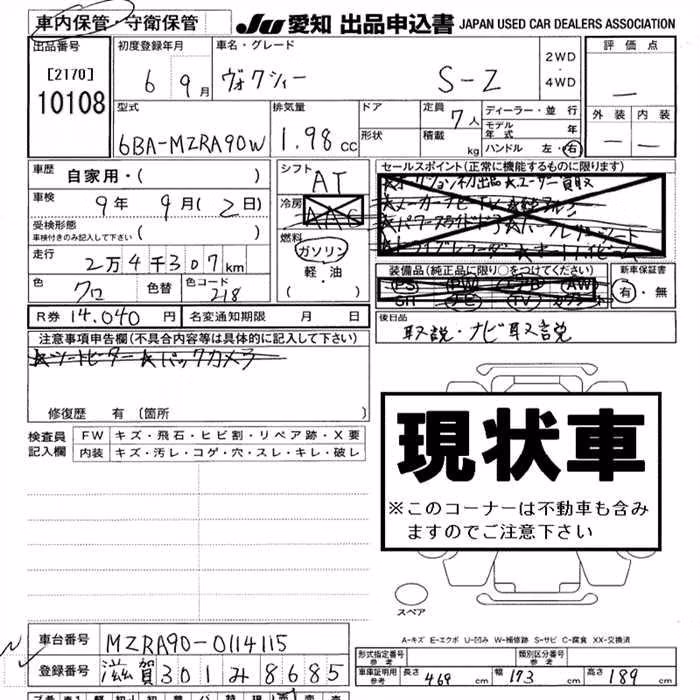 車内保管・守衛保管
JU 愛知 出品申込書 JAPAN USED CAR DEALERS ASSOCIATION
出品番号 初度登録年月 車名・グレード 評価点
[2170] 10108
6 9月 ヴォクシィー S-Z 2WD・4WD
—
型式 排気量 ドア 定員 7人 ディーラー・並行 外装 内装
モデル年式 年
6BA-MZRA90W 1.98cc 形状 積載 kg ハンドル 左・右 — —
車歴 自家用・( ) シフト AT セールスポイント(正常に機能するものに限ります)
車検 9年9月(2日) 冷房 AAC
受検形態 車検付きのみ記入して下さい ( ) 燃料
ガソリン
走行 2万4千307km 軽・油 装備品(純正品に限り○をつけてください) 新車保証書
色 クロ 色替 色コード 218 (・) PS PW エアB AW
SR ナビ TV カワシート 有・無
R券 14,040円 名変通知期限 月 日 後日品
取説・ナビ取説
注意事項申告欄(不具合内容等は具体的に記入して下さい)
★シートヒーター ★バックカメラ
修復歴 有 〔箇所 〕
検査員記入欄 FW キズ・飛石・ヒビ割・リペア跡・X要
内装 キズ・汚レ・コゲ・穴・スレ・キレ・破レ
現状車
※このコーナーは不動車も含み
ますのでご注意下さい
スペア
A-キズ E-エクボ U-凹み W-補修跡 S-サビ C-腐食 XX-交換済
車台番号 MZRA90-0114115 形式指定番号 参考 類別区分番号 参考
登録番号 滋賀 301 み 8685 車庫証明用 参考 長さ 469cm 幅 173cm 高さ 189cm